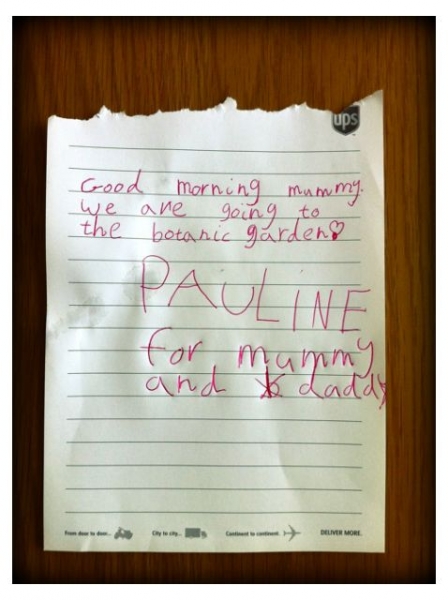 ups
Good morning mummy.
we are going to
the botanic garden
PAULINE
for mummy
and daddy
From door to door...
City to city...
Continent to continent.
DELIVER MORE.